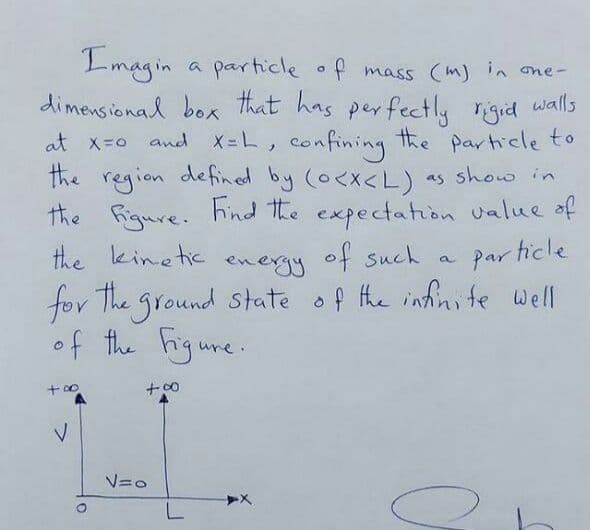 Imagin a particle of mass (m) in one-
dimensional box that has perfectly rigid walls
at x=0 and x=L, confining the particle to
the region defined by (0<x<L) as show in
the figure. Find the expectation value of
the kinetic energy of such a particle
for the ground state of the infinite well
of the figure.
+∞ +∞
V
V=0
0 L x